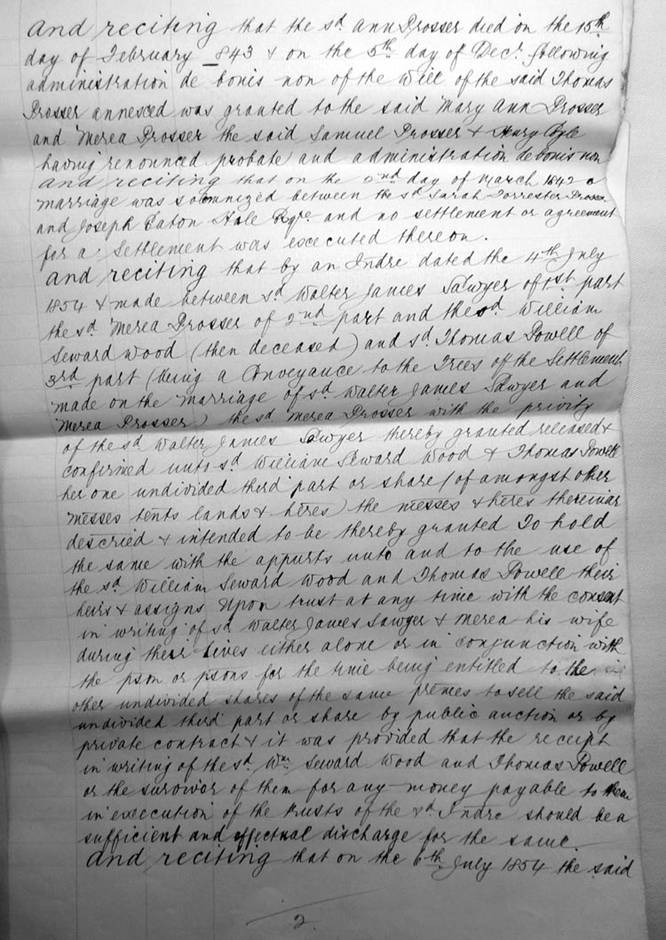 and reciting that the sd. Ann Prosser died on the 15th
day of February 843 & on the 5th day of Decr. following
administration de bonis non of the Will of the said Thomas
Prosser annexed was granted to the said Mary Ann Prosser
and Merea Prosser the said Samuel Prosser & Henry Pyle
having renounced probate and administration de bonis non
and reciting that on the 2nd day of March 1842 a
marriage was solomnized between the sd Sarah Forrester Prosser
and Joseph Eaton Hale Esqre and no settlement or agreement
for a settlement was executed thereon.
and reciting that by an Indre dated the 4th July
1854 & made between sd Walter James Sawyer of 1st part
the sd. Merea Prosser of 2nd part and the sd. William
Seward Wood (then deceased) and sd. Thomas Powell of
3rd part (being a Conveyance to the Trees of the Settlement
made on the marriage of sd Walter James Sawyer and
Merea Prosser) the sd Merea Prosser with the privity
of the sd Walter James Sawyer thereby granted released &
confirmed unto sd William Seward Wood & Thomas Powell
her one undivided third part or share (of amongst other
messes tents lands & heres) the messes & heres thereinar
descried & intended to be thereby granted To hold
the same with the appurts unto and to the use of
the sd William Seward Wood and Thomas Powell their
heirs & assigns Upon trust at any time with the consent
in writing of sd Walter James Sawyer & Merea his wife
during their lives either alone or in conjunction with
the pson or psons for the time being entitled to the
other undivided shares of the same premes to sell the said
undivided third part or share by public auction or by
private contract & it was provided that the receipt
in writing of the sd. Wm Seward Wood and Thomas Powell
or the survivor of them for any money payable to them
in execution of the trusts of the sd Indre should be a
sufficient and effectual discharge for the same.
and reciting that on the 6th July 1854 the said
2